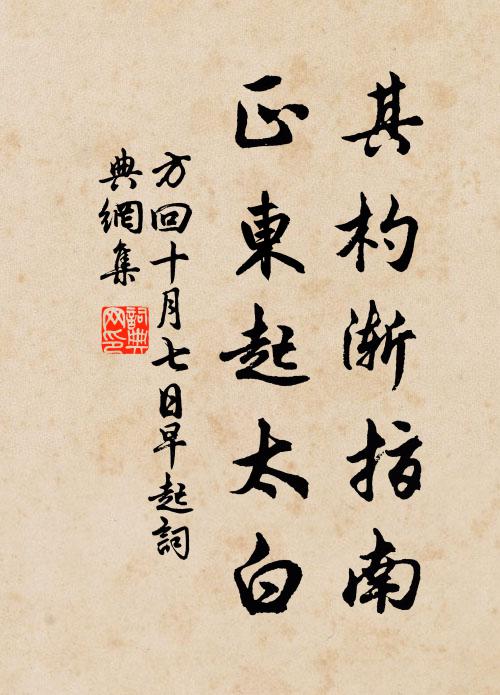 其杓漸指南
正東起太白
方回十月七日早起詞
典網集
詞典网印